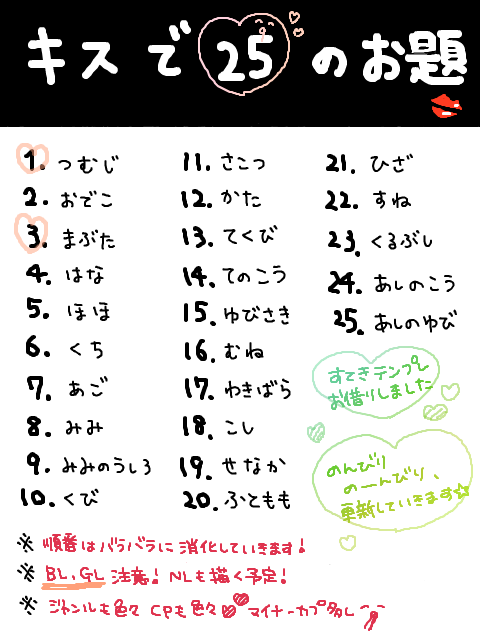 キスで25のお題
1. つむじ
2. おでこ
3. まぶた
4. はな
5. ほほ
6. くち
7. あご
8. みみ
9. みみのうしろ
10. くび
11. さこつ
12. かた
13. てくび
14. てのこう
15. ゆびさき
16. むね
17. わきばら
18. こし
19. せなか
20. ふともも
21. ひざ
22. すね
23. くるぶし
24. あしのこう
25. あしのゆび
すてきテンプレ
お借りしました
のんびり
のーんびり、
更新していきます☆
※ 順番はバラバラに消化していきます!
※ BL、GL注意! NLも描く予定!
※ ジャンルも色々 CPも色々 マイナーカプ多し